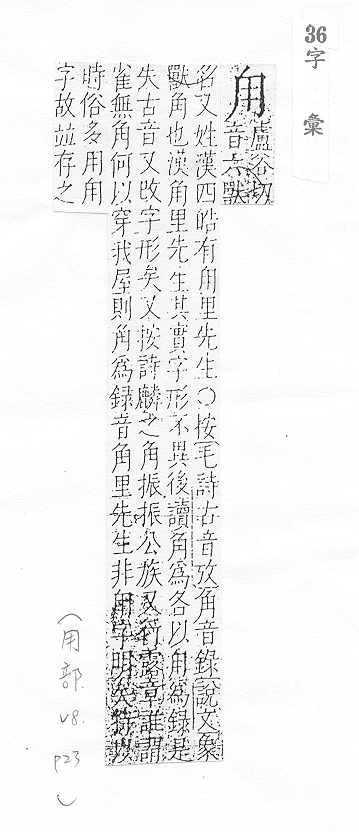 36
字彙
甪 盧谷切
音六獸
名又姓漢四皓有甪里先生○按毛詩古音攷角音錄說文象
獸角也漢角里先生其實字形不異後讀角爲各以甪爲録是
失古音又改字形矣又按詩麟之角振振公族又行露章誰謂
雀無角何以穿我屋則角爲録音角里先生非甪字明矣特以
時俗多用甪
字故並存之
(用部 V8. P23)